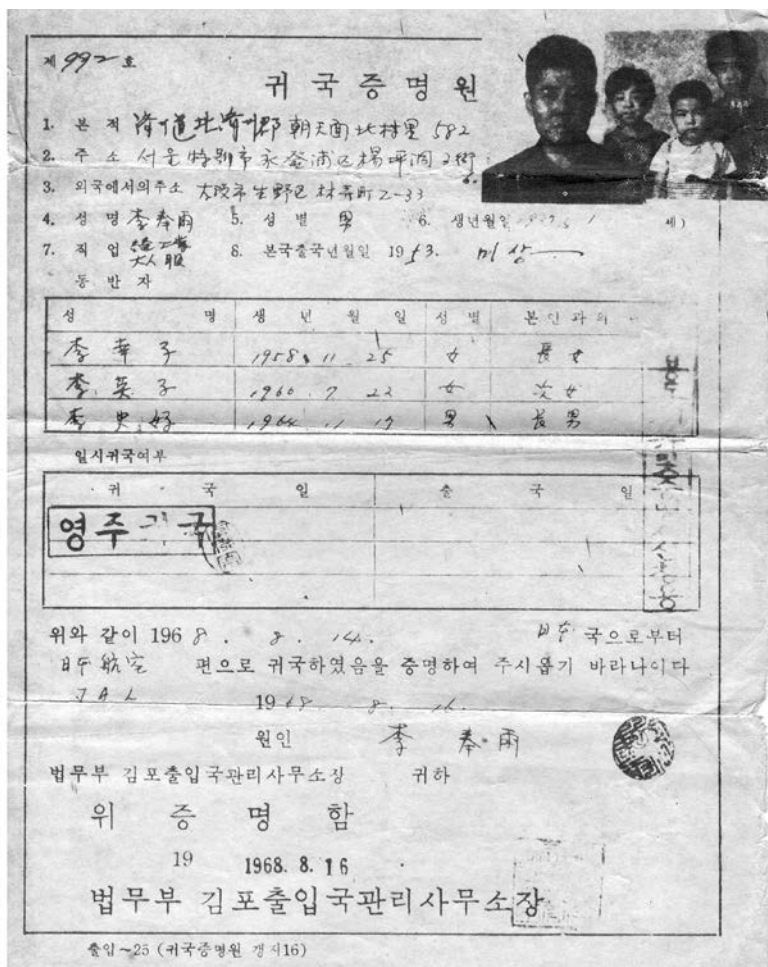 제 992 호
귀국증명원
1. 본적 濟州道北濟州郡 朝天面北村里 582
2. 주소 서울特別市永登浦区楊坪洞2街
3. 외국에서의주소 大阪市生野区林寺町2-33
4. 성명 李奉雨 5. 성별 男 6. 생년월일 세)
7. 직업 8. 본국출국년월일 1953. 미상
동반자
성명 생년월일 성별 본인과의
李幸子 1958. 11. 25 女 長女
李英子 7 22 女 次女
李史好 1964 11 17 男 長男
일시귀국여부
귀국일 출국일
영주귀국
위와 같이 1968. 8. 14. 日本 국으로부터
日本航空 편으로 귀국하였음을 증명하여 주시옵기 바라나이다
JAL 1968. 8. 16.
원인 李奉雨
법무부 김포출입국관리사무소장 귀하
위증명함
19 1968. 8. 16
법무부 김포출입국관리사무소장
출입~25 (귀국증명원 갱지16)